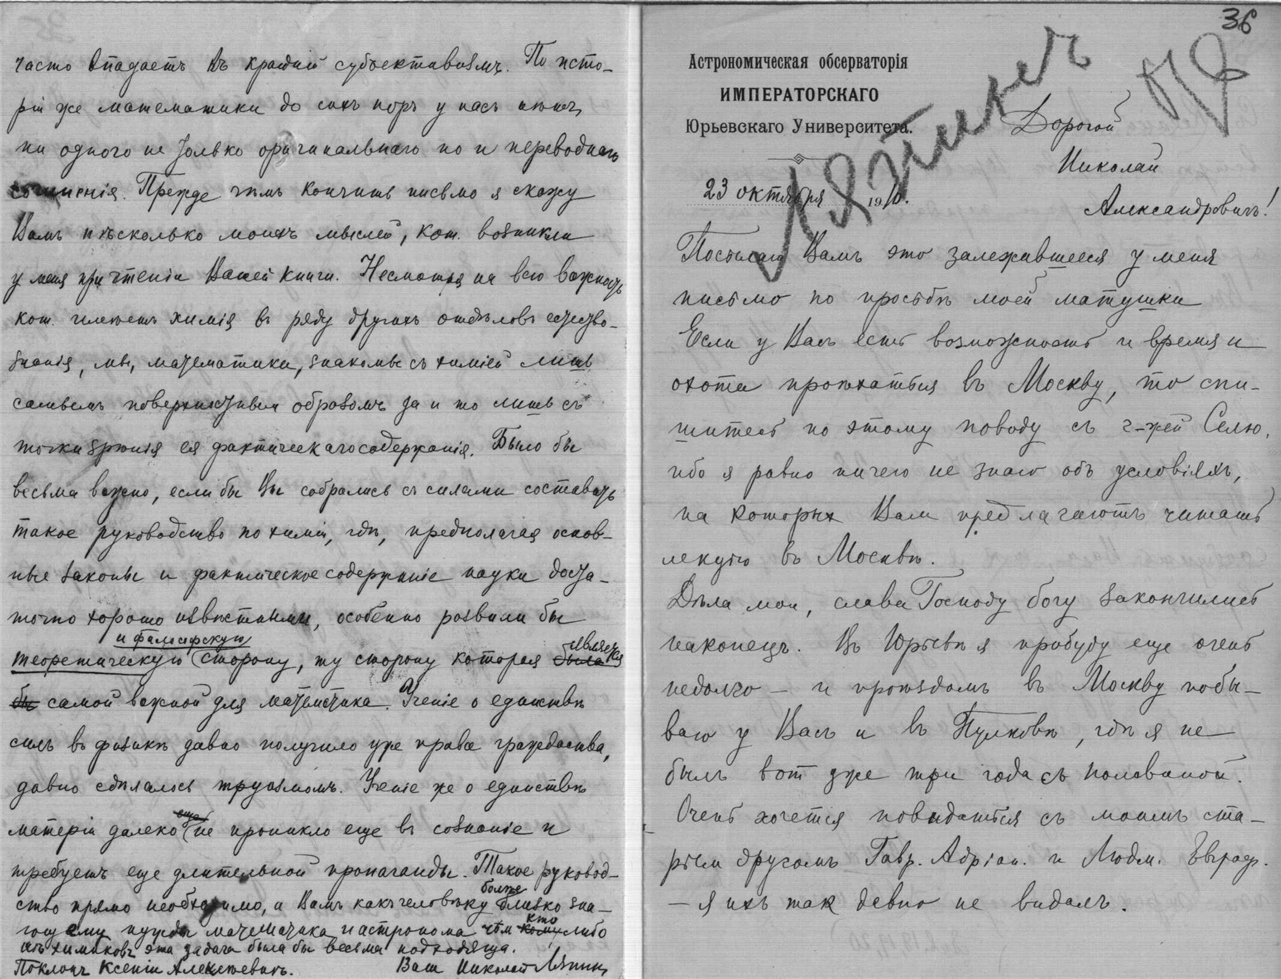 часто впадаетъ въ крайній субъективизмъ. По исто-
ріи же математики до сихъ поръ у насъ нѣтъ
ни одного не только оригинальнаго но и переводнаго
сочиненія. Прежде чѣмъ кончить письмо я скажу
Вамъ нѣсколько моихъ мыслей, кот. возникли
у меня при чтеніи Вашей книги. Несмотря на всю важность
кот. имѣетъ химія въ ряду другихъ отдѣловъ естество-
знанія, мы, математики, знакомы съ химіей лишь
самымъ поверхностнымъ образомъ да и то лишь съ
точки зрѣнія ея фактическаго содержанія. Было бы
весьма важно, если бы Вы собрались съ силами составить
такое руководство по химіи, гдѣ, предполагая основ-
ные законы и фактическое содержаніе науки доста-
точно хорошо извѣстными, особенно развили бы
и философскую
теоретическую сторону, ту сторону которая была является
бы самой важной для математика. Ученіе о единствѣ
силъ въ физикѣ давно получило уже права гражданства,
давно сдѣлалось труизмомъ. Ученіе же о единствѣ
матеріи далеко еще не проникло еще въ сознаніе и
требуетъ еще длительной пропаганды. Такое руковод-
ство прямо необходимо, и Вамъ какъ человѣку болѣе близко зна-
ющему нужды математика и астронома чѣм кому кто либо
изъ химиковъ эта задача была бы весьма подходяща.
Поклонъ Ксеніи Алексѣевнѣ. Вашъ Николай Ляпинъ
36
Астрономическая обсерваторія
ИМПЕРАТОРСКАГО
Юрьевскаго Университета.
Ляпинъ
23 октября 1910.
Дорогой
Николай
Александровичъ!
Посылаю Вамъ это залежавшееся у меня
письмо по просьбѣ моей матушки
Если у Васъ есть возможность и время и
охота проѣхаться въ Москву, то спи-
шитесь по этому поводу съ г-жей Селю,
ибо я равно ничего не знаю объ условіяхъ,
на которыхъ Вамъ предлагаютъ читать
лекцію въ Москвѣ.
Дѣла мои, слава Господу богу закончились
наконецъ. Въ Юрьевѣ я пробуду еще очень
недолго — и проѣздомъ въ Москву побы-
ваю у Васъ и въ Пулковѣ, гдѣ я не
былъ вот уже три года съ половиной.
Очень хочется повидаться съ моимъ ста-
рымъ другомъ Гавр. Адріан. и Людм. Евграф.
— я ихъ так давно не видалъ.